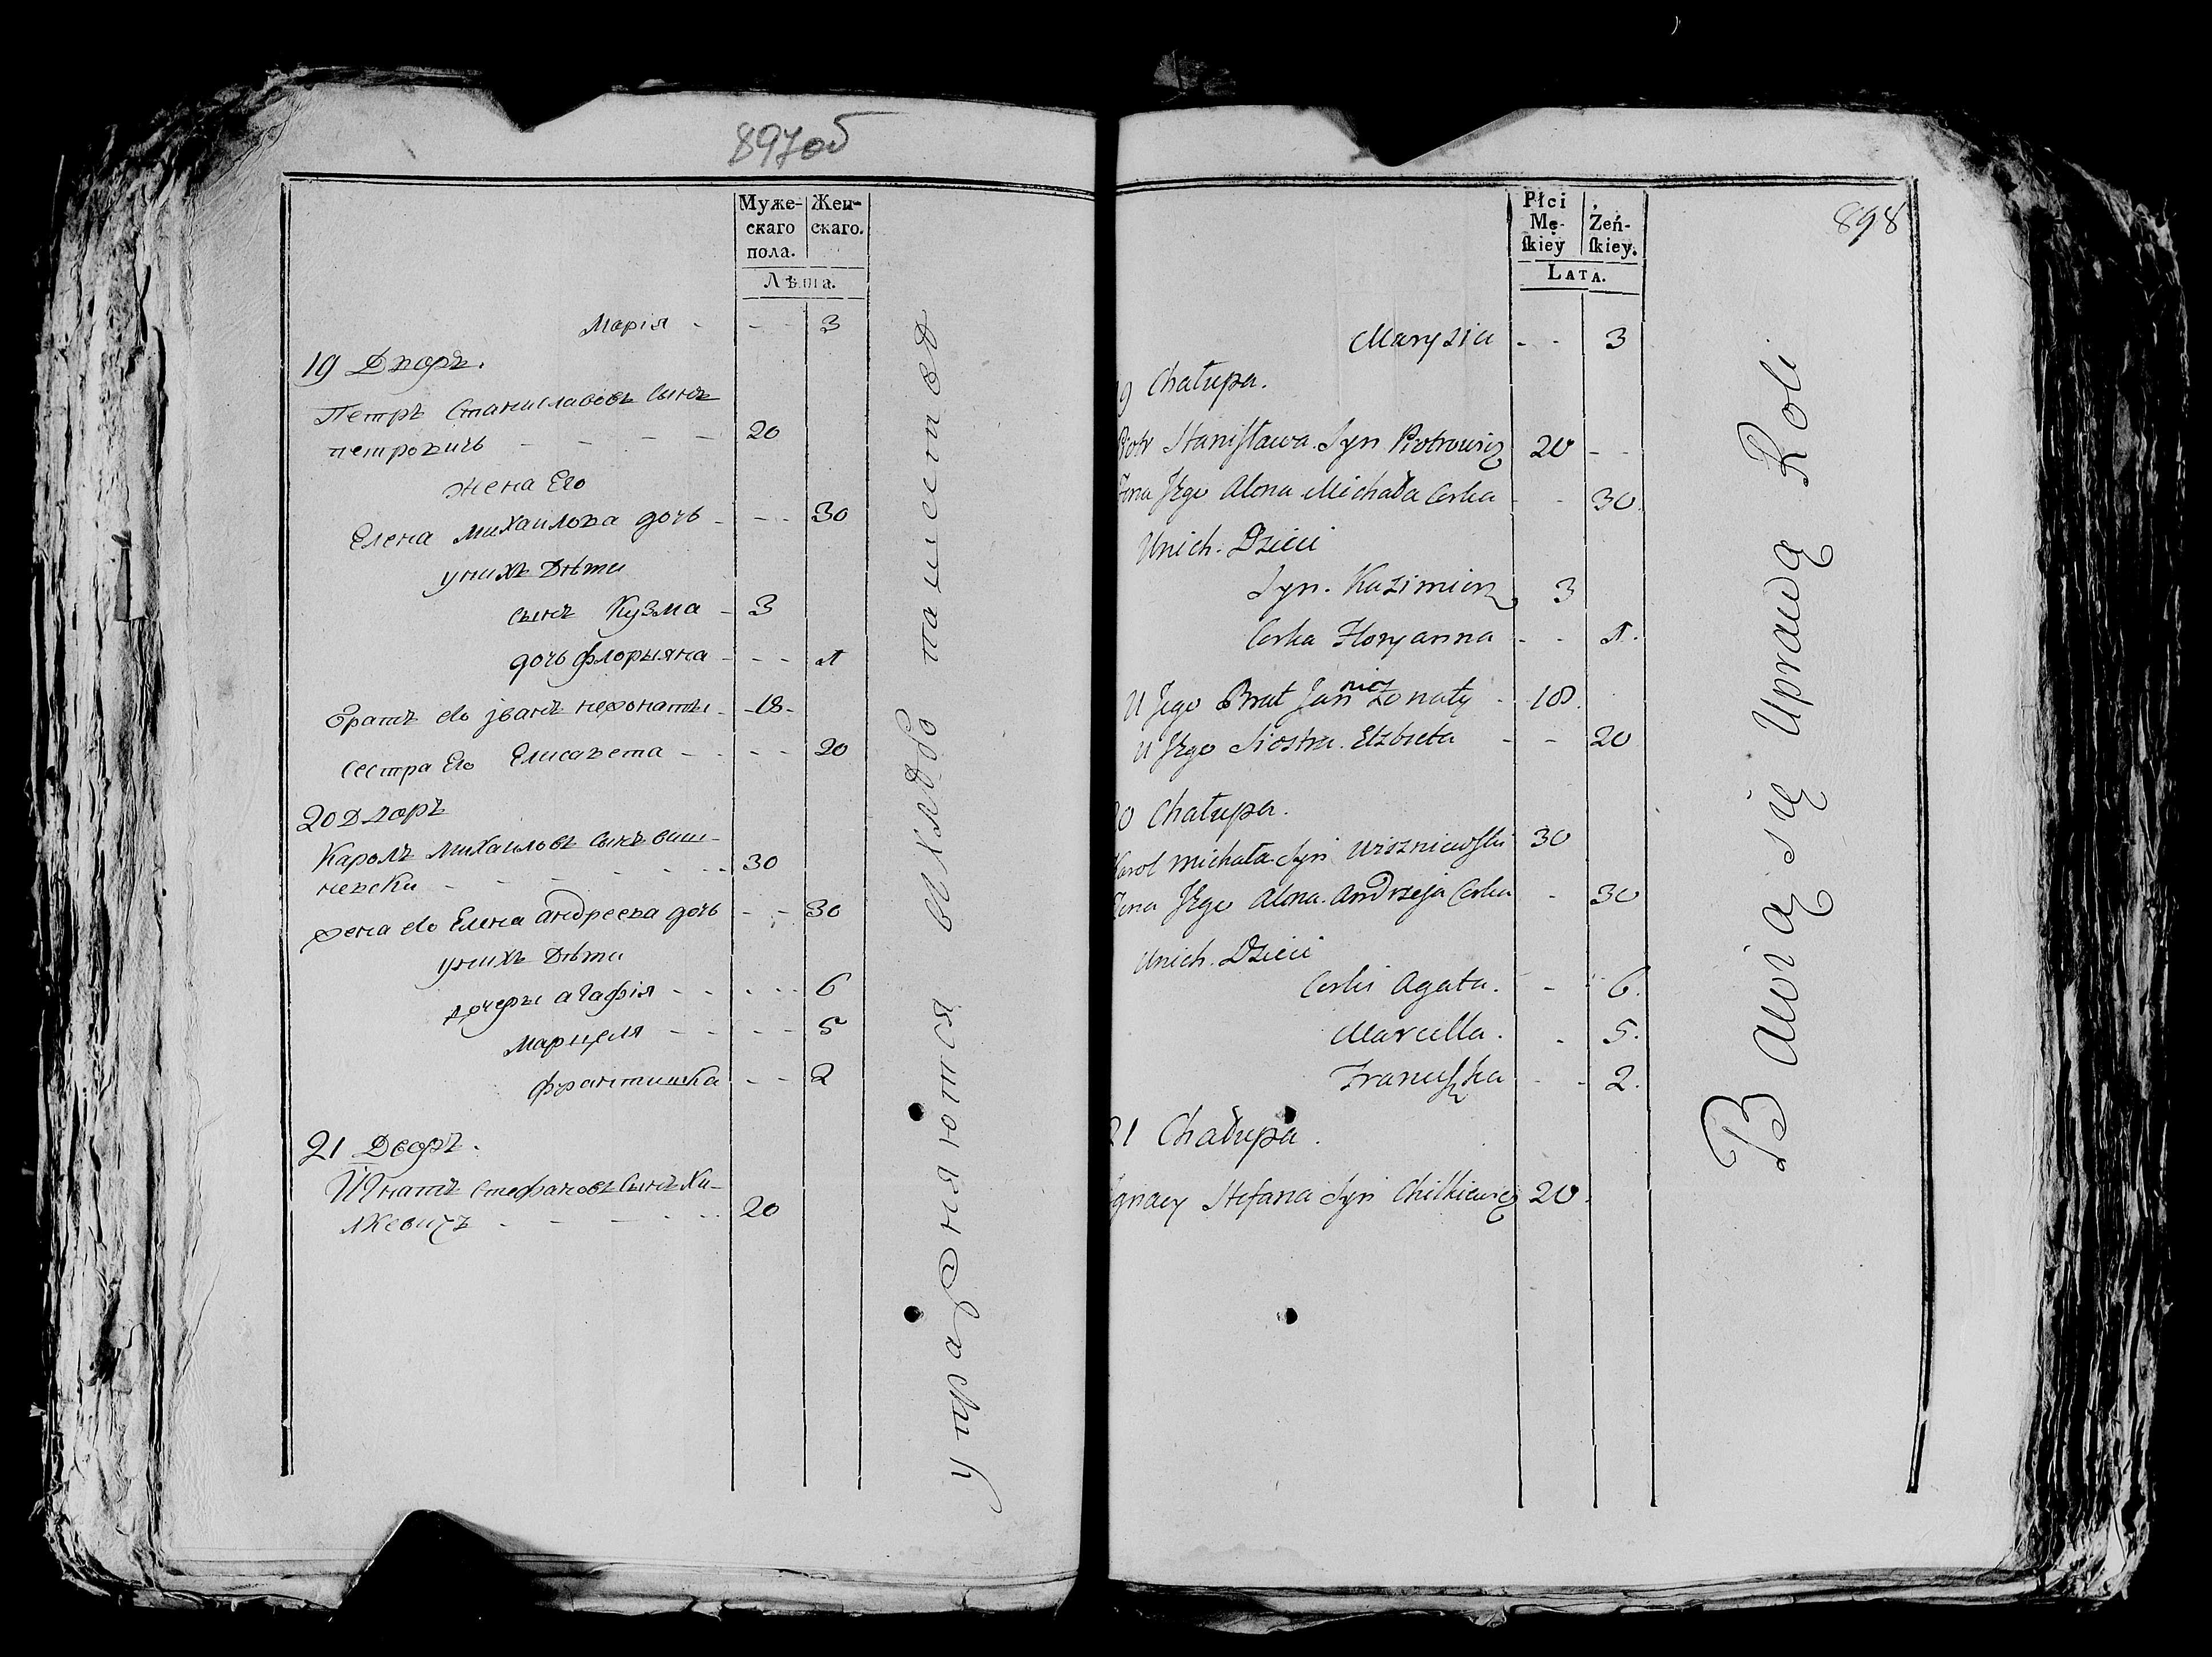 897об
Муже- Жен-
скаго скаго.
пола.
Лѣта.
Марія - - - 3
19 Дворъ.
Петръ Станиславовъ сынъ
петровичъ - - - - 20
жена Его
Елена михаилова дочь - - - 30
унихъ Дѣти
сынъ Кузма - 3
дочь флорыяна - - - 1
братъ его jванъ нежонаты - 18 -
сестра Его Елисавета - - - - 20
20 Дворъ
Каролъ михаиловъ сынъ виш-
невски - - - - - - 30
жена его Елена андреева дочь - - 30
унихъ Дѣти
дочеры агафія - - - - - 6
марцеля - - - - 5
франтишка - - 2
21 Дворъ.
Игнатъ стефановъ сынъ Хи-
лкевичъ - - - - - 20
упражняются
898
Płci
Mę- Żeń-
skiey skiey.
LATA.
Marysia - - 3
9 Chałupa.
Piotr Stanisława Syn Piotrowicz 20 - -
Żona Jego Alona Michała Corka - - 30.
Unich. Dzieci
Syn. Kazimierz 3
Corka Floryanna - - 1.
U Jego Brat Jan niez żonaty - 18.
U Jego Siostra. Elzbieta - - 20
0 Chałupa.
Karol Michała Syn Wiszniewski 30
Żona Jego Alona. Andrzeja Corka - 30
Unich. Dzieci
Corki Agata. - - 6.
Marcella. - 5.
Franciszka - - 2.
21 Chałupa.
Ignacy Stefana Syn Chilkiewicz 20.
Bawią się Uprawą Roli